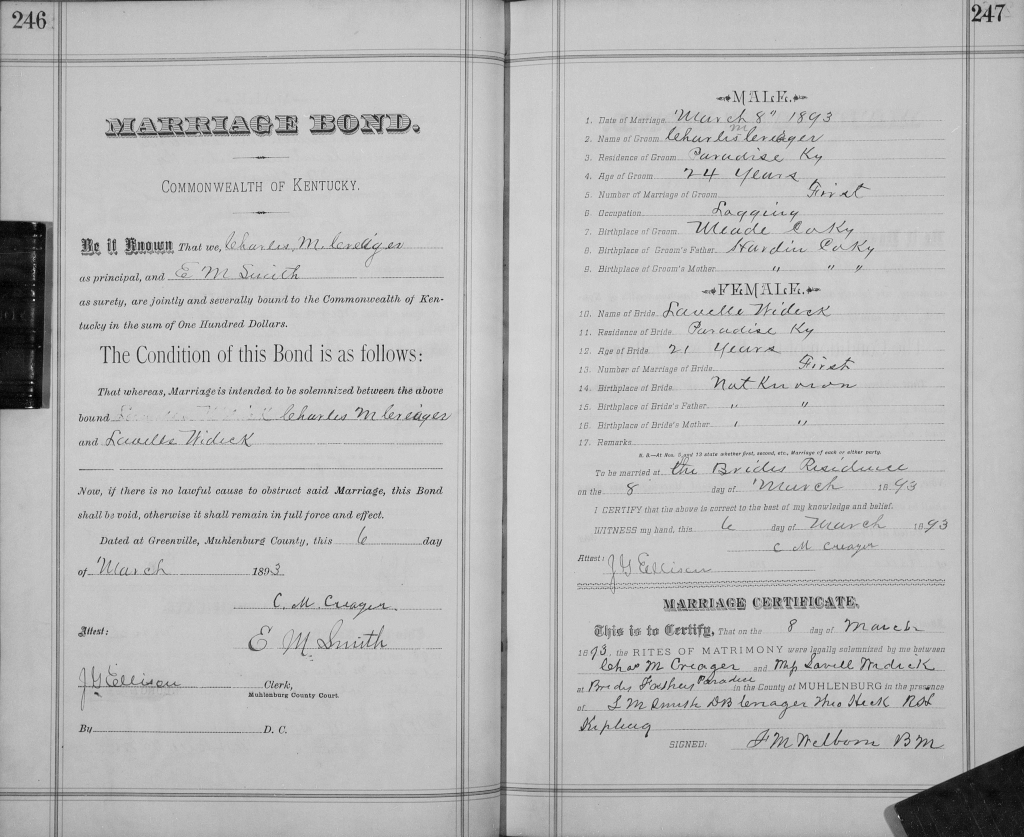 246
MARRIAGE BOND.
COMMONWEALTH OF KENTUCKY.
Be it Known That we, Charles, M. Creager
as principal, and E M Smith
as surety, are jointly and severally bound to the Commonwealth of Ken-
tucky in the sum of One Hundred Dollars.
The Condition of this Bond is as follows:
That whereas, Marriage is intended to be solemnized between the above
bound Charles M Creager
and Lavelle Wideck
Now, if there is no lawful cause to obstruct said Marriage, this Bond
shall be void, otherwise it shall remain in full force and effect.
Dated at Greenville, Muhlenburg County, this 6 day
of March 1893
C. M. Creager
Attest:
E M Smith
J G Ellison Clerk,
Muhlenburg County Court.
By D. C.
247
MALE.
1. Date of Marriage. March 8" 1893
2. Name of Groom. Charles M Creager
3. Residence of Groom. Paradise Ky
4. Age of Groom 24 Years
5. Number of Marriage of Groom First
6. Occupation. Logging
7. Birthplace of Groom. Meade Co Ky
8. Birthplace of Groom's Father. Hardin Co Ky
9. Birthplace of Groom's Mother " " "
FEMALE.
10. Name of Bride. Lavelle Wideck
11. Residence of Bride Paradise Ky
12. Age of Bride 21 Years
13. Number of Marriage of Bride First
14. Birthplace of Bride. Not Known
15. Birthplace of Bride's Father " "
16. Birthplace of Bride's Mother " "
17. Remarks
N. B.—At Nos. 5 and 13 state whether first, second, etc., Marriage of each or either party.
To be married at the Brides Residence
on the 8 day of March 1893
I CERTIFY that the above is correct to the best of my knowledge and belief.
WITNESS my hand, this 6 day of March 1893
C M Creager
Attest:
J G Ellison
MARRIAGE CERTIFICATE.
This is to Certify, That on the 8 day of March
1893, the RITES OF MATRIMONY were legally solemnized by me between
Chas M Creager and Miss Lavell Wadick
at Brides Fathers Paradise in the County of MUHLENBURG in the presence
of Smith D B Creager Theo Heck
SIGNED: J M Welborn B M